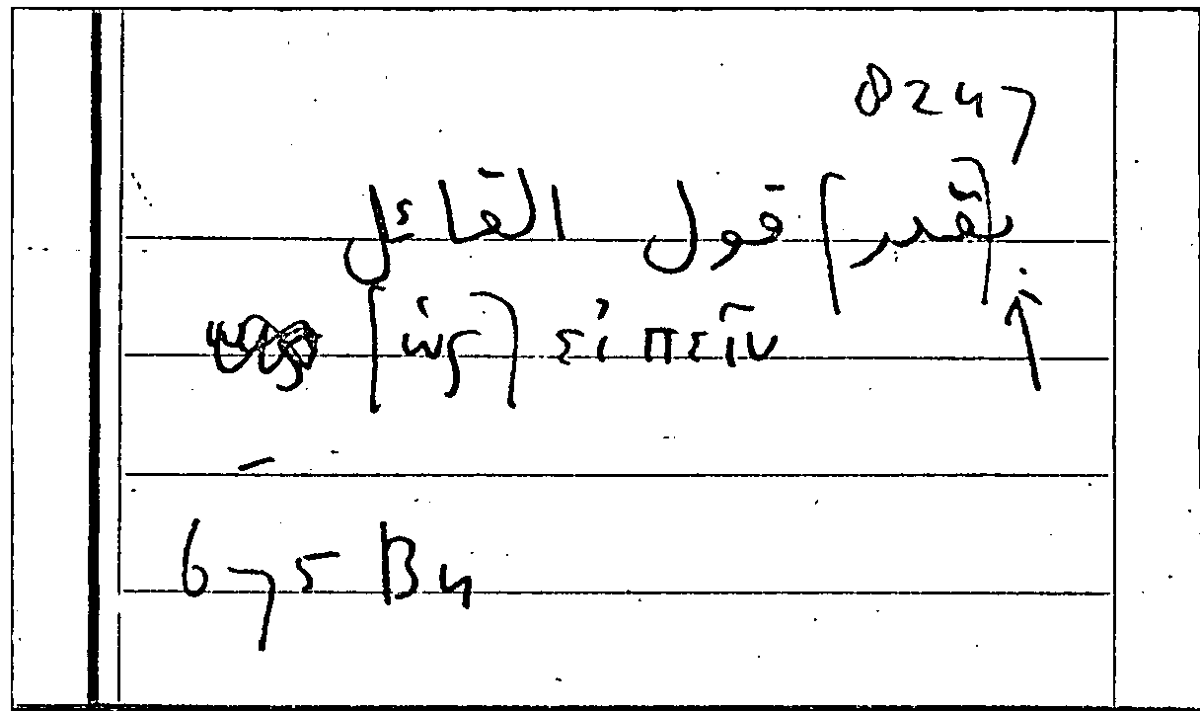 8247
[بقدر] قول القائل
[ὡς] εἰπεῖν
675 B4